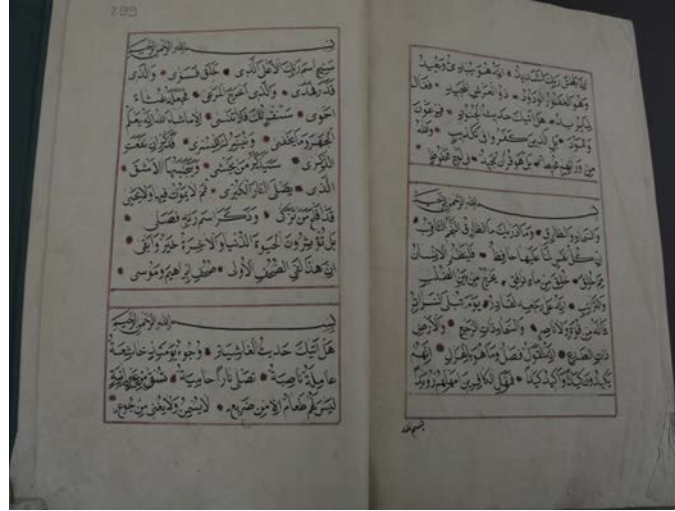 ان بطش ربك لشديد انه هو يبدئ ويعيد
وهو الغفور الودود ذو العرش المجيد فعال
لما يريد هل اتيك حديث الجنود فرعون
وثمود بل الذين كفروا فى تكذيب والله
من ورائهم محيط بل هو قران مجيد فى لوح محفوظ
بسم الله الرحمن الرحيم
والسماء والطارق وما ادريك ما الطارق النجم الثاقب
ان كل نفس لما عليها حافظ فلينظر الانسان
مم خلق خلق من ماء دافق يخرج من بين الصلب
والترائب انه على رجعه لقادر يوم تبلى السرائر
فما له من قوة ولا ناصر والسماء ذات الرجع والارض
ذات الصدع انه لقول فصل وما هو بالهزل انهم
يكيدون كيدا واكيد كيدا فمهل الكافرين امهلهم رويدا
بسم الله
299
بسم الله الرحمن الرحيم
سبح اسم ربك الاعلى الذى خلق فسوى والذى
قدر فهدى والذى اخرج المرعى فجعله غثاء
احوى سنقرئك فلا تنسى الا ما شاء الله انه يعلم
الجهر وما يخفى ونيسرك لليسرى فذكر ان نفعت
الذكرى سيذكر من يخشى ويتجنبها الاشقى
الذى يصلى النار الكبرى ثم لا يموت فيها ولا يحيى
قد افلح من تزكى وذكر اسم ربه فصلى
بل تؤثرون الحيوة الدنيا والاخرة خير وابقى
ان هذا لفى الصحف الاولى صحف ابرهيم وموسى
بسم الله الرحمن الرحيم
هل اتيك حديث الغاشية وجوه يومئذ خاشعة
عاملة ناصبة تصلى نارا حامية تسقى من عين انية
ليس لهم طعام الا من ضريع لا يسمن ولا يغنى من جوع